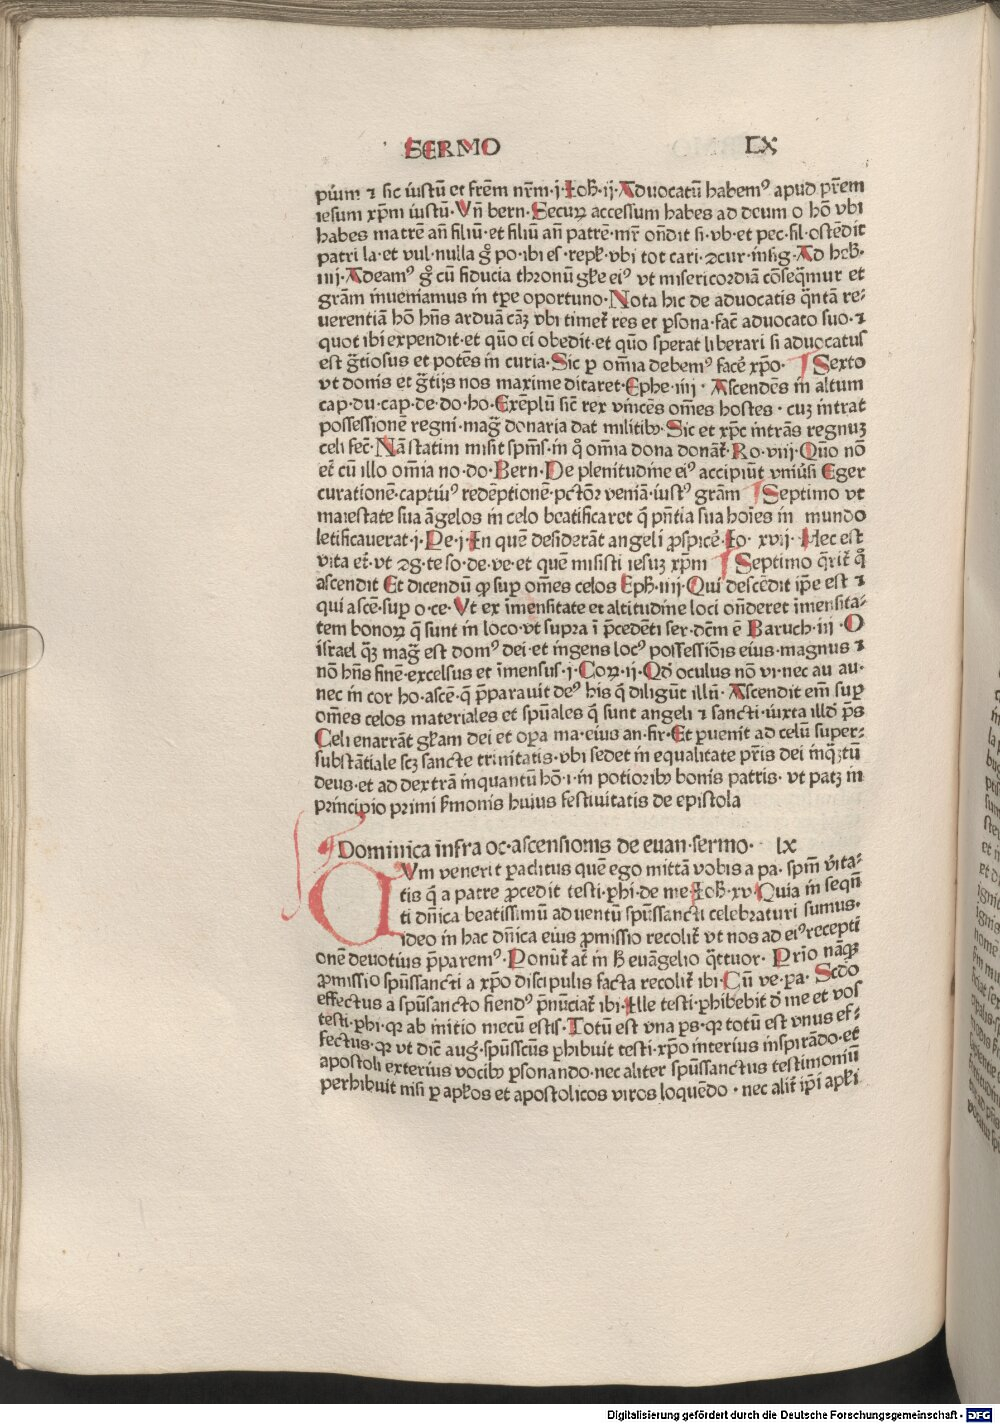 SERMO LX
pium ⁊ sic iustū et frēm nr̄m·j·Joh̄·ij·Aduocatū habemꝰ apud pr̄em
iesum xp̄m iustū·Vn̄ bern·Securꝝ accessum habes ad deum o hō vbi
habes matrē an̄ filiū·et filiū an̄ patrē·mr̄ on̄dit fi·vb·et pec·fil·ostēdit
patri la·et vul·nulla gͦ po·ibi es· vbi tot cari·Ad heb̄·
iiij·Adeamꝰ gͦ cū fiducia thronū gl̄ie eiꝰ vt misericordiā cōseq̄mur et
grām inueniamus in tp̄e oportuno·Nota hic de aduocatis q̄ntā re⸗
uerentiā hō hn̄s arduā cāꝫ vbi timet̄ res et ꝑsona·fac̄ aduocato suo·⁊
quot ibi expendit·et quō ei obedit·et quō sperat liberari si aduocatus
est gr̄tiosus et potēs in curia·Sic ꝑ om̄ia debemꝰ facē xp̄o· ¶ Sexto
vt donis et gr̄tijs nos maxime ditaret·Ephe·iiij·Ascendēs in altum
cap·du·cap·de·do·ho·Exēplū sic̄ rex vincēs om̄es hostes·cuꝫ intrat
possessionē regni·maḡ donaria dat militibꝰ·Sic et xp̄c intrās regnuꝫ
celi fec̄·Nā statim misit spm̄s·in qͦ om̄ia dona donāt̄·Ro·viij·Quō nō
et̄ cū illo om̄ia no·do·Bern·De plenitudine eiꝰ accipiūt vniūsi Eger
curationē·captiuꝰ redēptionē·pctōr veniā·iustꝰ grām ¶ Septimo vt
maiestate sua āgelos in celo beatificaret q̄ pn̄tia sua hoīes in mundo
letificauerat·j·Pe·j·In quē desiderāt angeli ꝓspicē·Jo·xvij·Hec est
vita et̄·vt ꝯg·te so·de·ve·et quē misisti iesuꝫ xp̄m ¶ Septimo q̄rit̄ qͦ
ascendit Et dicendū ꝙ suꝑ om̄es celos Eph̄·iiij·Qui descēdit ip̄e est ⁊
qui ascē·suꝑ o·ce·Vt ex īmensitate et altitudine loci on̄deret īmensita⸗
tem bonoꝝ q̄ sunt in loco·vt supra ī p̄cedēti ser·dc̄m ē Baruch·iij·O
israel q̄ꝫ maḡ est domꝰ dei·et ingens locꝰ possessiōis eius·magnus ⁊
nō hn̄s finē·excelsus et īmensus·j·Coꝝ·ij·Qd̄ oculus nō vi·nec au au·
nec in cor ho·ascē·q̄ p̄parauit deꝰ his q̄ diligūt illū·Ascendit em̄ suꝑ
om̄es celos materiales et spūales q̄ sunt angeli ⁊ sancti·iuxta illd̄ p̄s
Celi enarrāt gl̄iam dei et oꝑa ma·eius an·fir·Et ꝑuenit ad celū super⸗
substātiale scꝫ sancte trinitatis·vbi sedet in equalitate pr̄is dei inq̄ꝫtū
deus·et ad dextrā inquantū hō·i·in potioribꝰ bonis patris·vt patꝫ in
principio primi s̄monis huius festiuitatis de epistola
¶ Dominica īnfra oc·ascensionis de euan·sermo· lx
QVm venerit paclitus quē ego mittā vobis a pa·spm̄ v̄ita⸗
tis q̄ a patre ꝓcedit testi·ꝑhi·de me·Joh̄·xv·Quia in seqn̄
ti dn̄ica beatissimū aduentū spūssancti celebraturi sumus·
ideo in hac dn̄ica eius ꝓmissio recolit̄ vt nos ad eiꝰ recepti
onē deuotius p̄paremꝰ·Ponūt̄ at̄ in h̄ euāgelio q̄ttuor·Prīo nāq̄ꝫ
ꝓmissio spūssancti a xp̄o discipulis facta recolit̄ ibi·Cū ve·pa·Scd̄o
effectus a spūsancto fiendꝰ p̄nūciat̄ ibi·Ille testi·ꝑhibebit d̄ me et vos
testi·ꝑhi·qꝛ ab initio mecū estis·Totū est vna ꝑs·qꝛ totū est vnus ef⸗
fectus·qꝛ vt dic̄ aug·spūsscūs ꝑhibuit testi·xp̄o interius inspirādo·et
apostoli exterius vocibꝰ ꝑsonando·nec aliter spūssanctus testimoniū
perhibuit nisi ꝑ ap̄los et apostolicos viros loquēdo·nec alit̄ ip̄i ap̄li
Digitalisierung gefördert durch die Deutsche Forschungsgemeinschaft - DFG